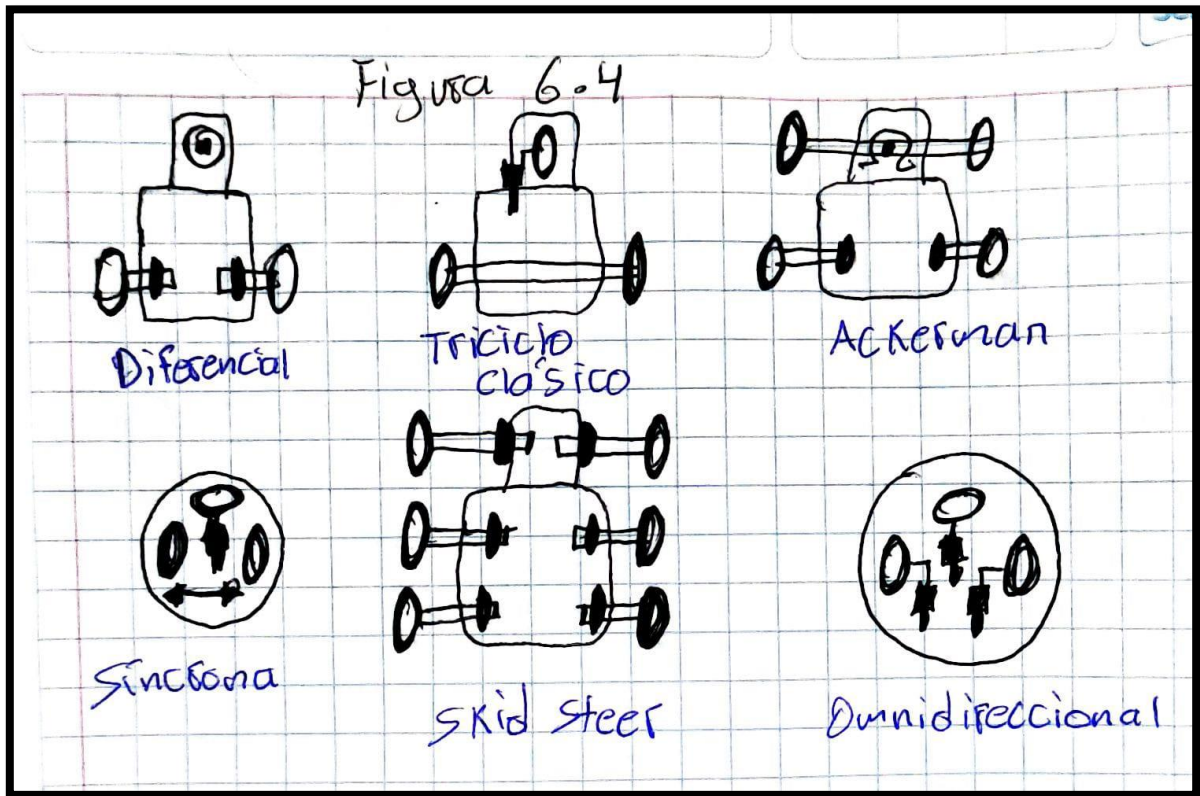 Figura 6.4
Diferencial
Triciclo
clásico
Ackerman
Síncrona
Skid steer
Omnidireccional